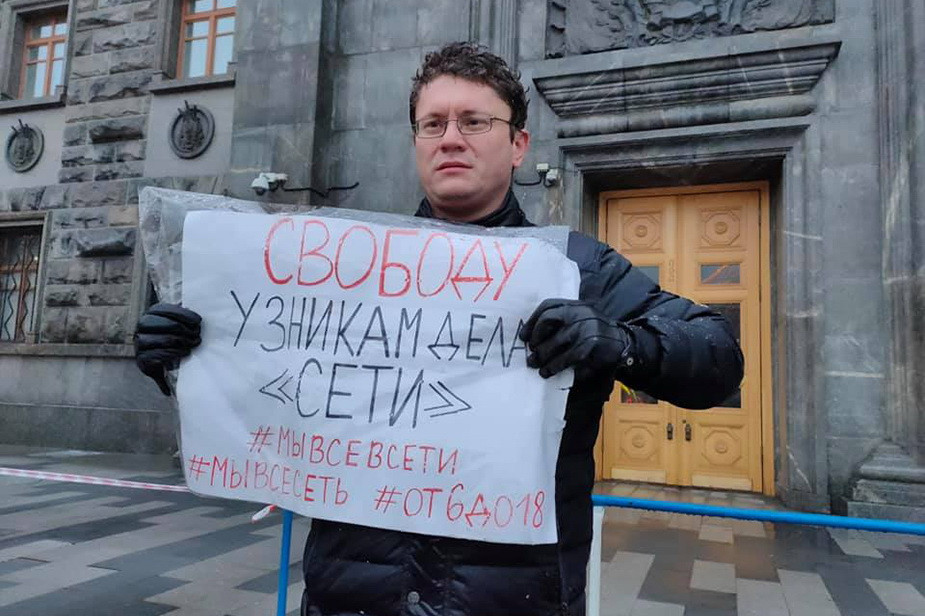 СВОБОДУ
УЗНИКАМ ДЕЛА
«СЕТИ»
#МЫВСЕВСЕТИ
#МЫВСЕСЕТЬ #ОТ6ДО18